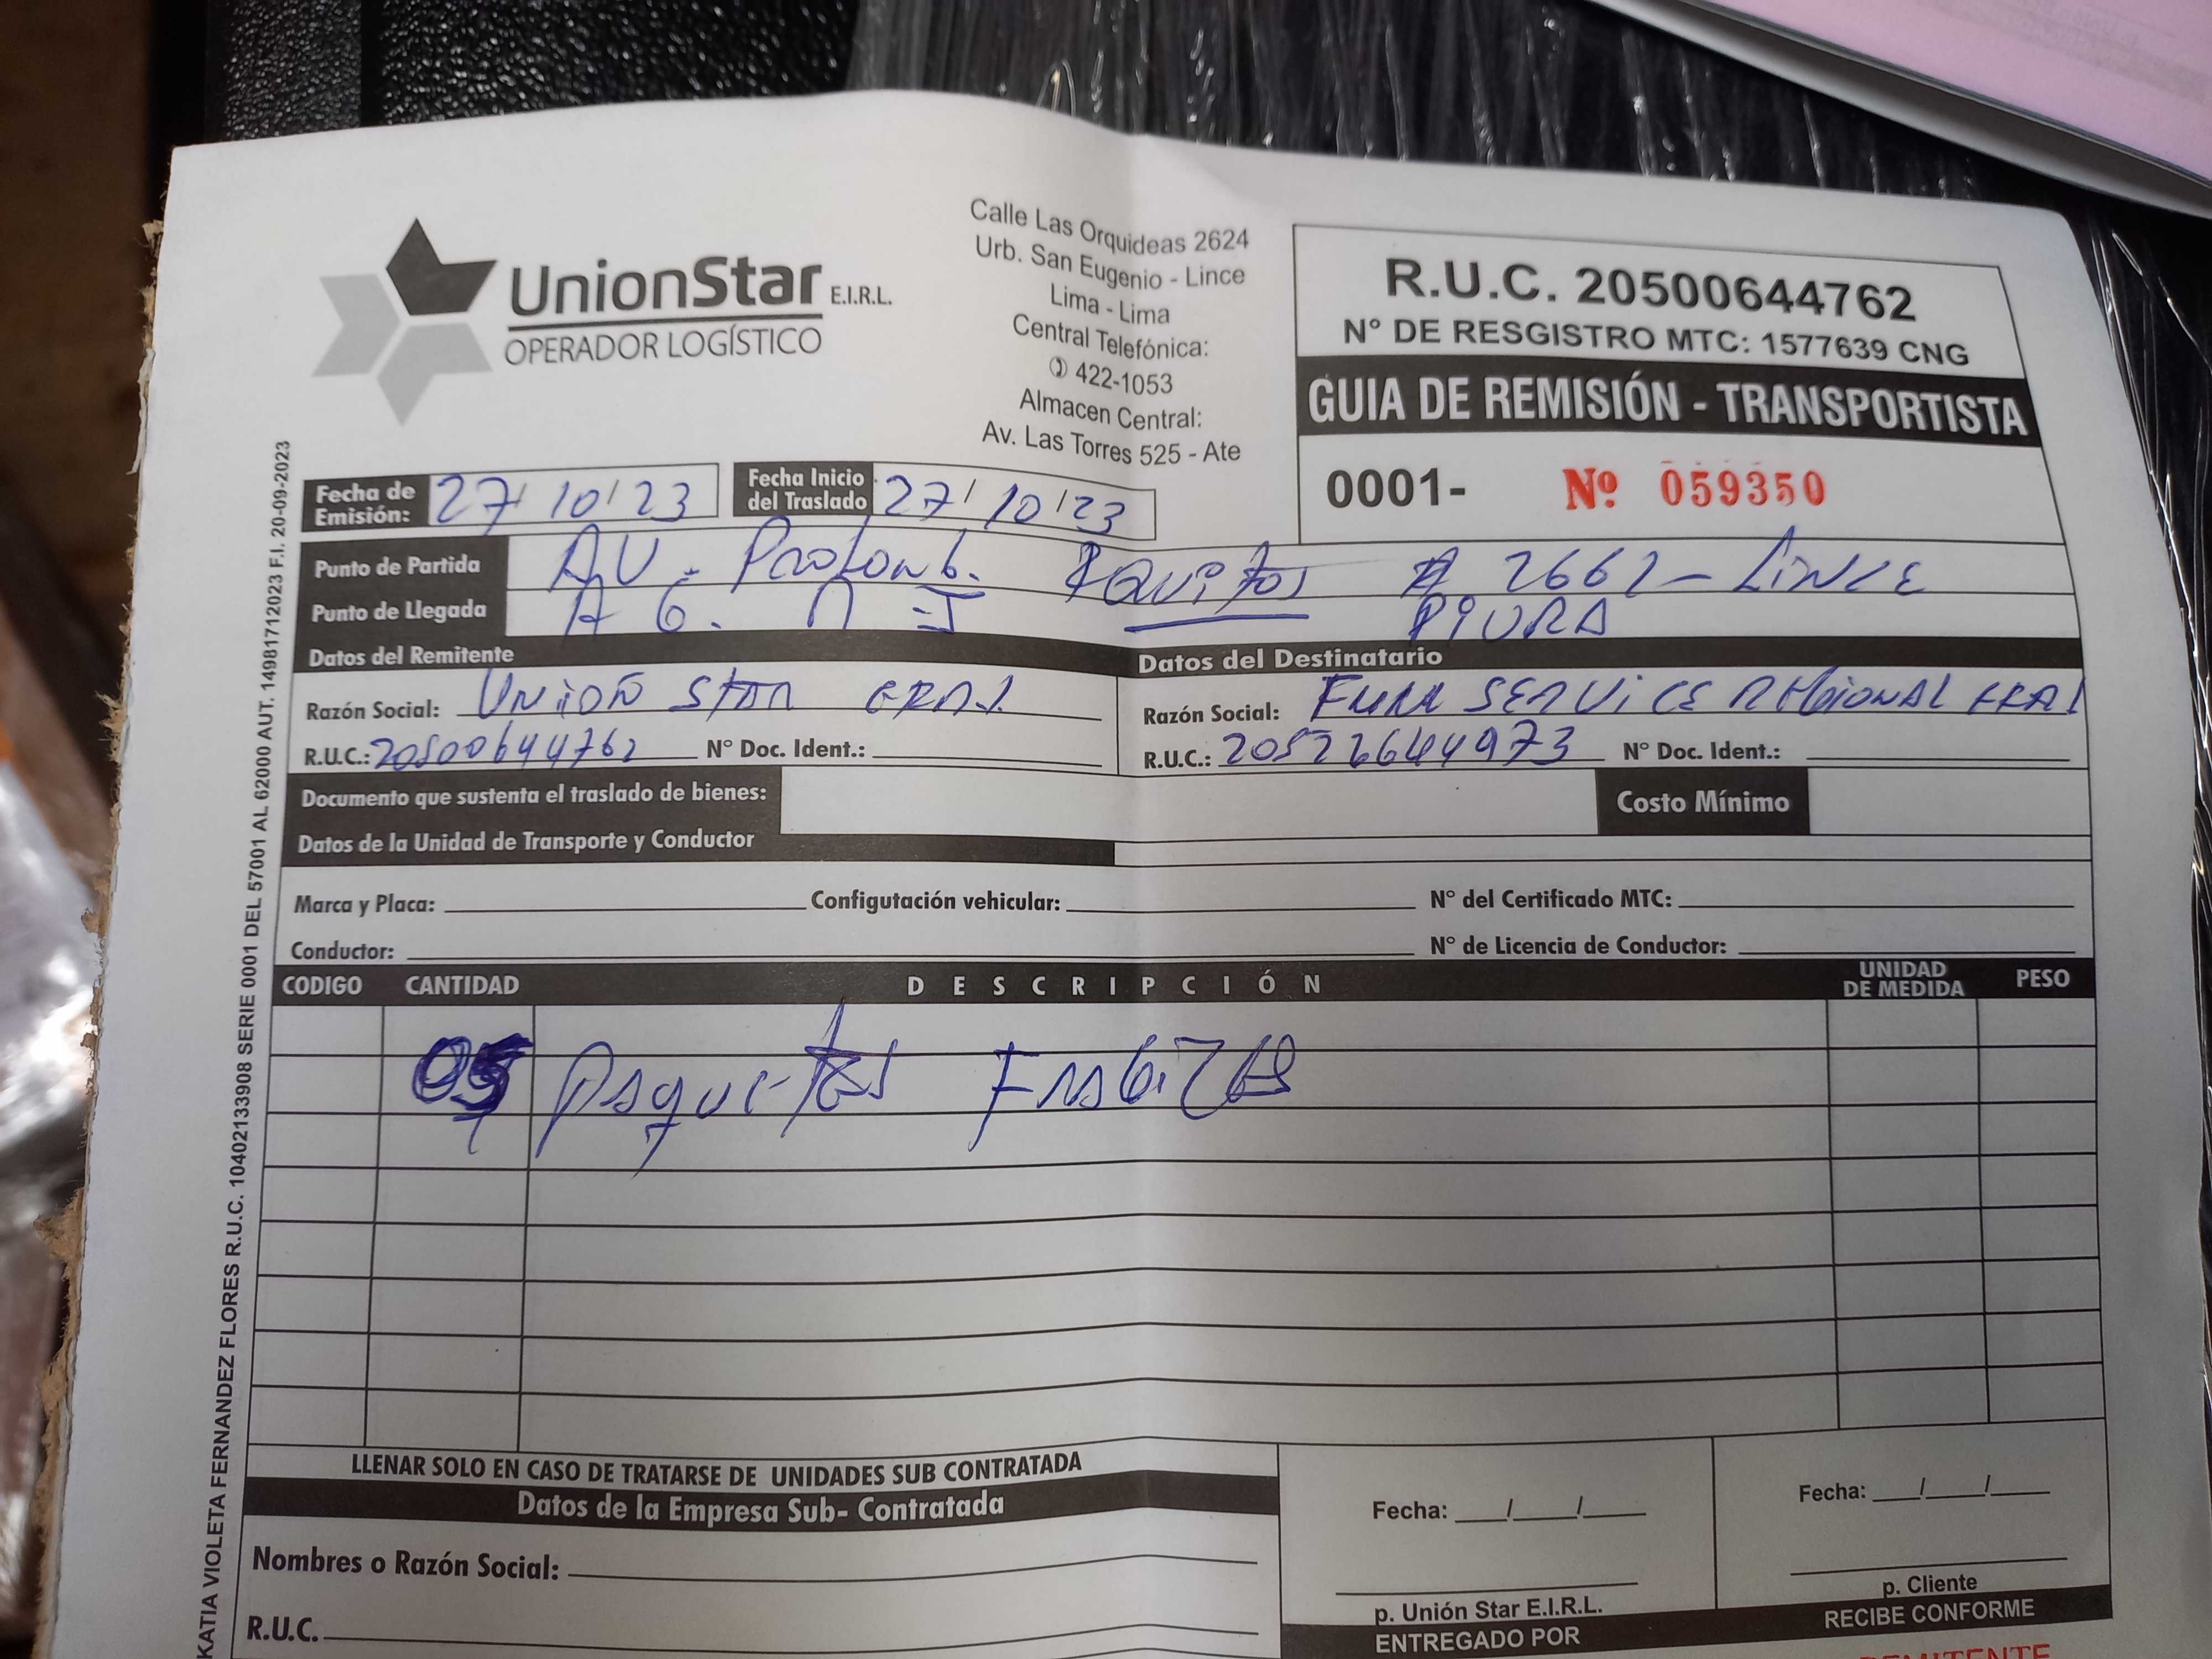 UnionStar E.I.R.L.
OPERADOR LOGÍSTICO
Calle Las Orquideas 2624
Urb. San Eugenio - Lince
Lima - Lima
Central Telefónica:
422-1053
Almacen Central:
Av. Las Torres 525 - Ate
R.U.C. 20500644762
N° DE RESGISTRO MTC: 1577639 CNG
GUIA DE REMISIÓN - TRANSPORTISTA
0001- Nº 059350
Fecha de Emisión: 27/10/23
Fecha Inicio del Traslado 27/10/23
Punto de Partida AV. Prolong. Iquitos # 2662 - Lince
Punto de Llegada AG. PIURA
Datos del Remitente
Razón Social: Union Star
R.U.C.: 20500644762 N° Doc. Ident.:
Datos del Destinatario
Razón Social: SERVICE REGIONAL
R.U.C.: 20526644973 N° Doc. Ident.:
Documento que sustenta el traslado de bienes:
Costo Mínimo
Datos de la Unidad de Transporte y Conductor
Marca y Placa: Configutación vehicular: N° del Certificado MTC:
Conductor: N° de Licencia de Conductor:
CODIGO CANTIDAD DESCRIPCIÓN UNIDAD DE MEDIDA PESO
Paquetes
LLENAR SOLO EN CASO DE TRATARSE DE UNIDADES SUB CONTRATADA
Datos de la Empresa Sub- Contratada
Nombres o Razón Social:
R.U.C.
Fecha: __/__/__
p. Unión Star E.I.R.L.
ENTREGADO POR
Fecha: __/__/__
p. Cliente
RECIBE CONFORME
REMITENTE
KATIA VIOLETA FERNANDEZ FLORES R.U.C. 10402133908 SERIE 0001 DEL 57001 AL 62000 AUT. 14981712023 F.I. 20-09-2023